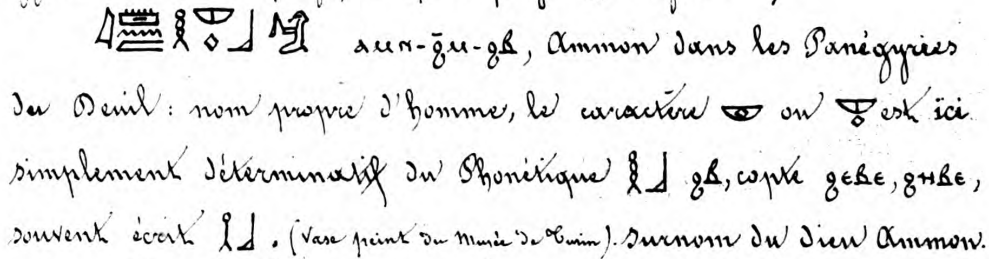 𓇋𓏠𓈖𓎛𓎱𓃀 ⲁⲙⲛ-ϩ̄ⲙ-ϩⲃ, Ammon dans les Panégyries
du Deuil : nom propre d'homme, le caractère 𓎱 ou 𓎱 est ici
simplement déterminatif du Phonétique 𓎛𓃀 ϩⲃ, copte ϩⲉⲃⲉ, ϩⲏⲃⲉ,
souvent écrit 𓎛𓃀. (Vase peint du Musée de Turin). Surnom du dieu Ammon.